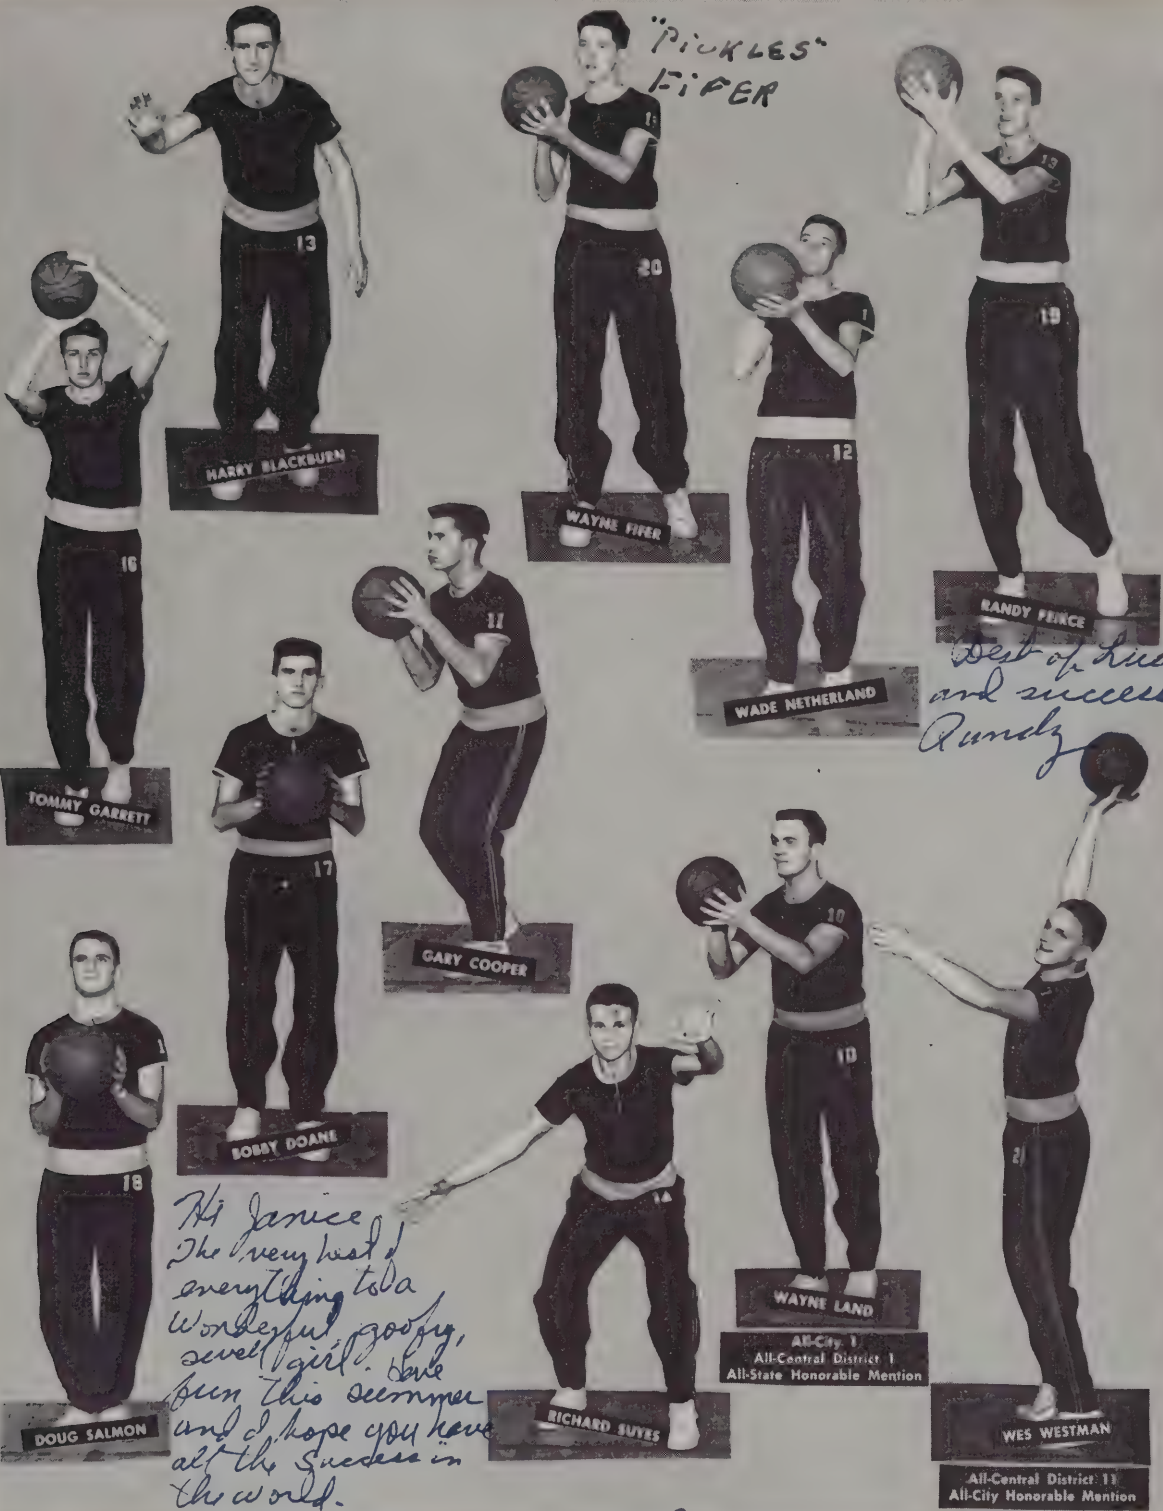 "PiCKLES"
FiFER
13
1
20
13
19
HARRY BLACKBURN
16
WAYNE FIFER
1
12
RANDY PEIRCE
Best of Luc
and success
Randy
WADE NETHERLAND
11
TOMMY GARRETT
1
17
GARY COOPER
10
10
1
18
BOBBY DOANE
14
21
Hi Janice,
The very best of
everything to a
Wonderful, goofy,
swell girl. Have
fun this summer
and I hope you have
all the success in
the world.
DOUG SALMON
RICHARD SUYES
WAYNE LAND
All-City 1
All-Central District 1
All-State Honorable Mention
WES WESTMAN
All-Central District 11
All-City Honorable Mention